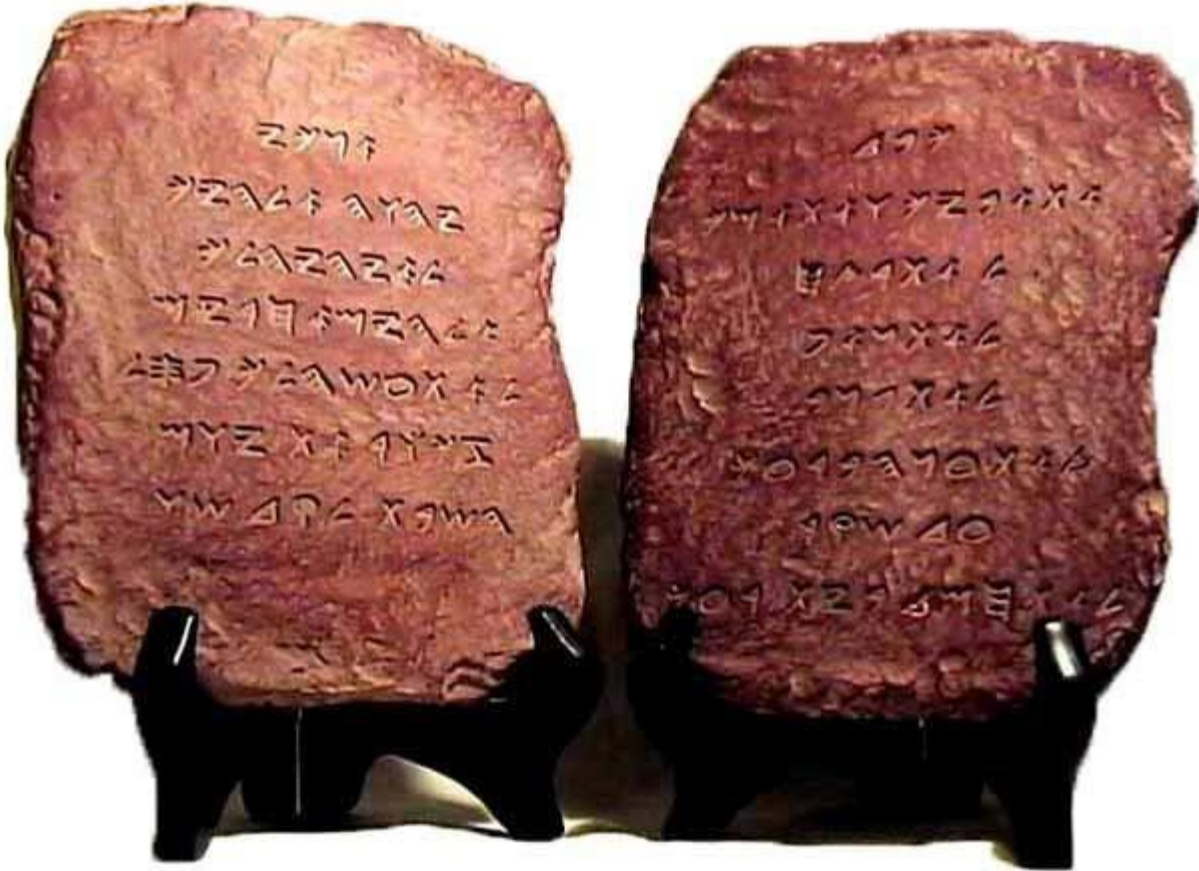 𐤀𐤍𐤊𐤉
𐤉𐤄𐤅𐤄 𐤀𐤋𐤄𐤉𐤊
𐤋𐤀𐤉𐤄𐤉𐤄𐤋𐤊
𐤀𐤋𐤄𐤉𐤌𐤀𐤇𐤓𐤉𐤌
𐤋𐤀 𐤕𐤏𐤔𐤄𐤋𐤊 𐤐𐤎𐤋
𐤆𐤊𐤅𐤓 𐤀𐤕 𐤉𐤅𐤌
𐤄𐤔𐤁𐤕
𐤊𐤁𐤃
𐤀𐤕𐤀𐤁𐤉𐤊 𐤅𐤀𐤕𐤀𐤌𐤊
𐤋𐤀𐤕𐤓𐤑𐤇
𐤋𐤀𐤕𐤍𐤀𐤐
𐤋𐤀𐤕𐤂𐤍𐤁
𐤋𐤀𐤕𐤏𐤍𐤄𐤁𐤓𐤏𐤊
𐤏𐤃 𐤔𐤒𐤓
𐤋𐤀𐤕𐤇𐤌𐤃 𐤁𐤉𐤕 𐤓𐤏𐤊